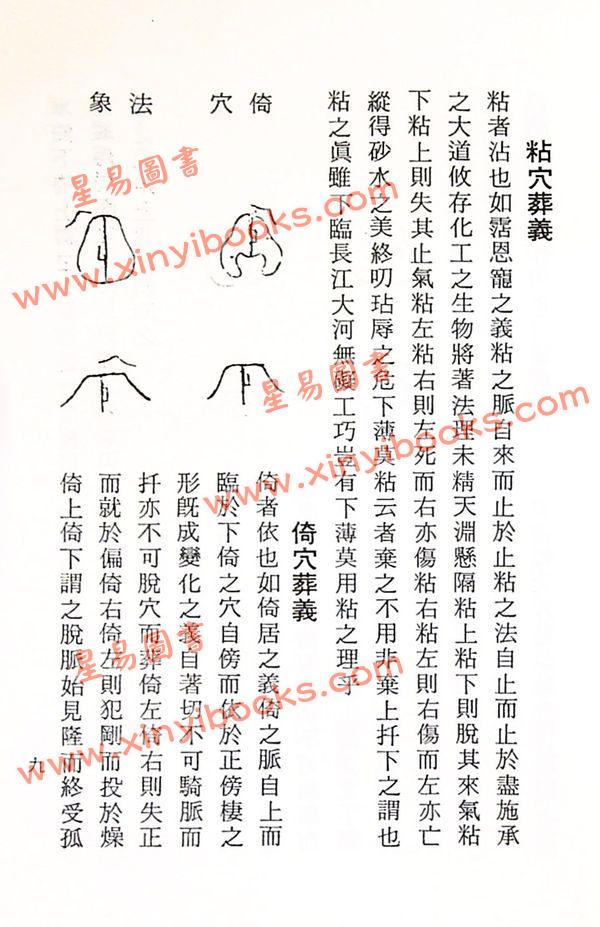 粘穴葬義
粘者沾也如霑恩寵之義粘之脈自來而止於止粘之法自止而止於盡施承
之大道攸存化工之生物將著法理未精天淵懸隔粘上粘下則脫其來氣粘
下粘上則失其止氣粘左粘右則左死而右亦傷粘右粘左則右傷而左亦亡
縱得砂水之美終叨玷辱之危下薄莫粘云者棄之不用非棄上扦下之謂也
粘之眞雖下臨長江大河無礙工巧豈有下薄莫用粘之理乎
倚穴葬義
倚者依也如倚居之義倚之脈自上而
臨於下倚之穴自傍而依於正傍棲之
形旣成變化之義自著切不可騎脈而
扦亦不可脫穴而葬倚左倚右則失正
而就於偏倚右倚左則犯剛而投於燥
倚上倚下謂之脫脈始見隆而終受孤
倚穴
法象
九
星易圖書
www.xinyibooks.com
星易圖書
www.xinyibooks.com
星易圖書
www.xinyibooks.com